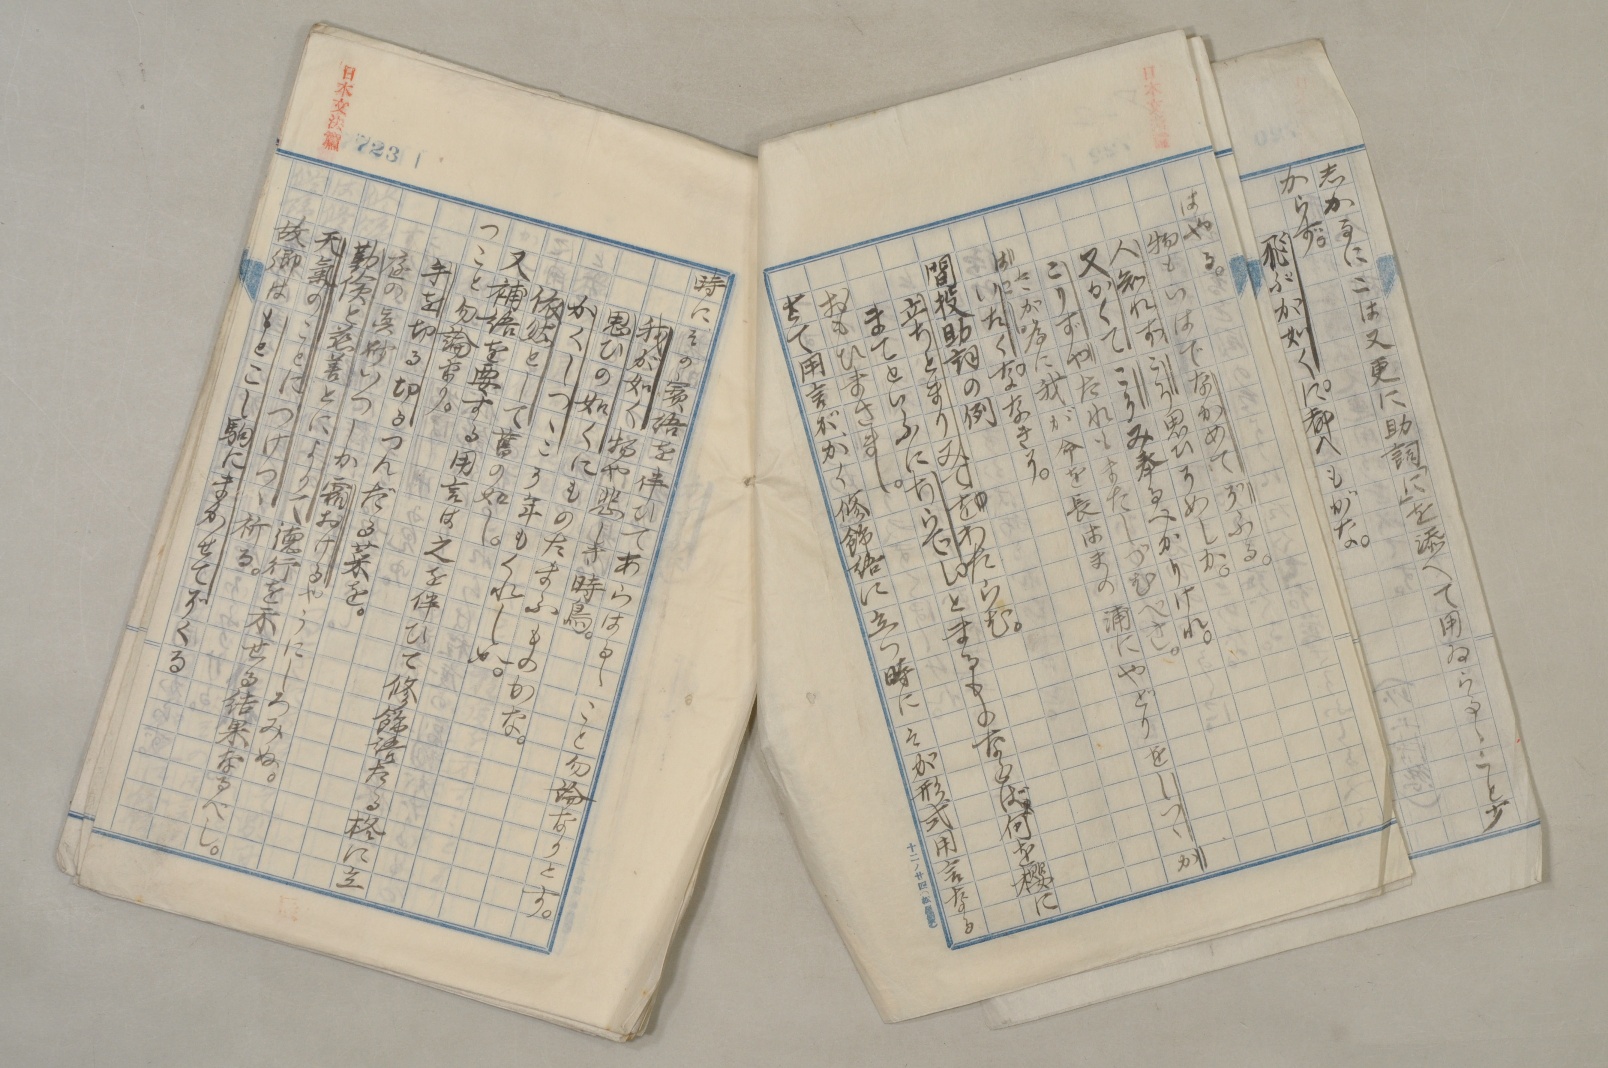 志かるにこは又更に助詞「に」を添へて用ゐらるゝこと少
からず。
飛ぶが如くに。都へもがな。
日本文法編
はやる。
物もいはでながめてぞふる。
人知れずこそ思ひそめしか。
又かくてこそみ奉るべかりけれ。
こりずやたれもまたしのむべき。
我が命を長はまの浦にやどりをしつゝが
ばいたくなゝきそ。
間投助詞の例
立ちとまりみてをわたらむ。
まてといふにちらでしとまるものならば何を櫻に
おもひまさまし。
さて用言がかく修飾語に立つ時にそが形式用言なる
十二ノ廿四
日本文法編
723
時にその賓語を伴ひてあらはるゝこと勿論なりとす。
我が如く物や悲しき時鳥。
思ひの如くにものたまふものかな。
かくしつゝこそ年もくれしか。
依然として舊の如し。
又補語を要する用言は之を伴ひて修飾語たる格に立
つこと勿論なり。
手を切る切るつんだる菜を。
庭の眞砂いつしか霜おけるやうにしろみぬ。
勤儉と慈善とによりて徳行を示せる結果なるべし。
天氣のことにつけつゝ祈る。
故郷はもとこし駒にまかせてぞくる